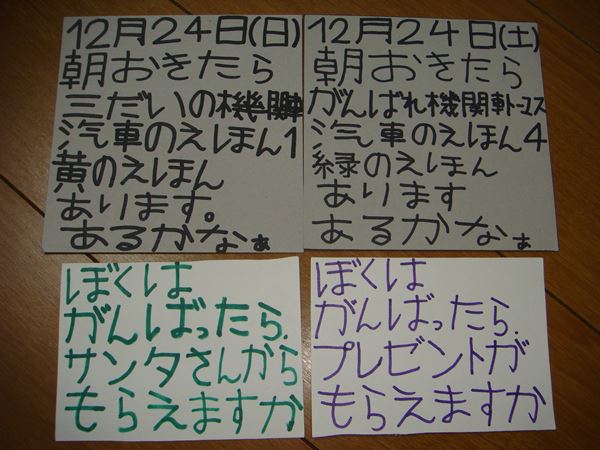 12月24日(日)
朝おきたら
三だいの機関車
汽車のえほん1
黄のえほん
あります。
あるかなぁ
12月24日(土)
朝おきたら
がんばれ機関車トーマス
汽車のえほん4
緑のえほん
あります
あるかなぁ
ぼくは
がんばったら.
サンタさんから
もらえますか
ぼくは
がんばったら.
プレゼントが
もらえますか